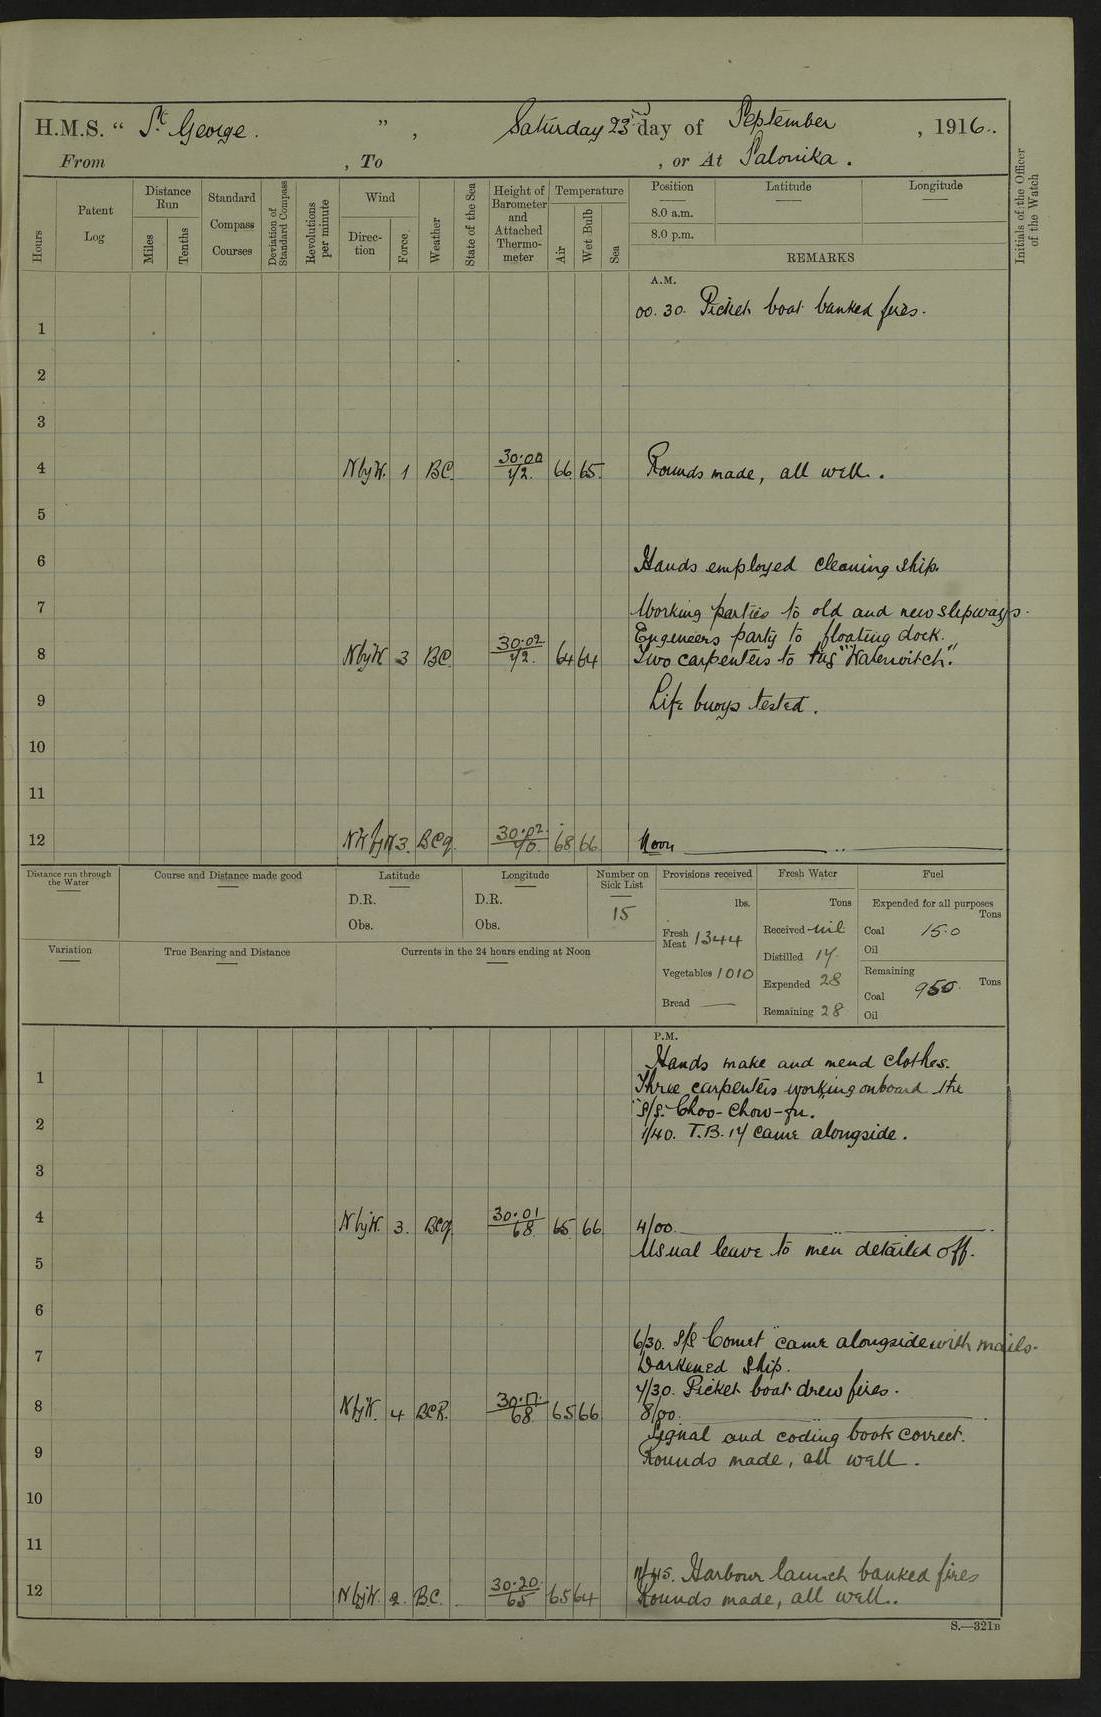 H.M.S. " St. George. ", Saturday 23rd day of September, 1916.
From , To , or At Salonika.
Hours
Patent Log
Distance Run
Miles
Tenths
Standard Compass Courses
Deviation of Standard Compass
Revolutions per minute
Wind
Direction
Force
Weather
State of the Sea
Height of Barometer and Attached Thermometer
Temperature
Air
Wet Bulb
Sea
Position
Latitude
Longitude
8.0 a.m.
8.0 p.m.
REMARKS
Initials of the Officer of the Watch
A.M.
00.30. Picket boat banked fires.
1
2
3
4 NbyW. 1 BC. 30.00/72. 66 65. Rounds made, all well.
5
6 Hands employed cleaning ship.
7 Working parties to old and new slipways.
Engineers party to floating dock.
8 NbyW 3 BC 30.02/72. 64 64 Two carpenters to tug "Waterwitch."
9 Life buoys tested.
10
11
12 NWbyN 3. BCq. 30.02./70. 68 66 Noon
Distance run through the Water
Course and Distance made good
Latitude
D.R.
Obs.
Longitude
D.R.
Obs.
Number on Sick List
15
Provisions received
lbs.
Fresh Meat 1344
Vegetables 1010
Bread —
Fresh Water
Tons
Received nil
Distilled 17
Expended 28
Remaining 28
Fuel
Expended for all purposes
Tons
Coal 15.0
Oil
Remaining
Tons
Coal 950.
Oil
Variation
True Bearing and Distance
Currents in the 24 hours ending at Noon
P.M.
Hands make and mend clothes.
1 Three carpenters working onboard the
S/S. Choo-chow-fu.
2 1/40. T.B. 17 came alongside.
3
4 NbyW. 3. BCq 30.01/68. 65 66 4/00.
Usual leave to men detailed off.
5
6
6/30. S/S "Comet" came alongside with mails.
7 Darkened ship.
7/30. Picket boat drew fires.
8 NbyW. 4 BCR. 30.17./68. 65 66 8/00.
Signal and coding book correct.
9 Rounds made, all well.
10
11
11/45. Harbour launch banked fires
12 NbyW. 2. B.C. 30.20./65 65 64 Rounds made, all well.
S.—321B